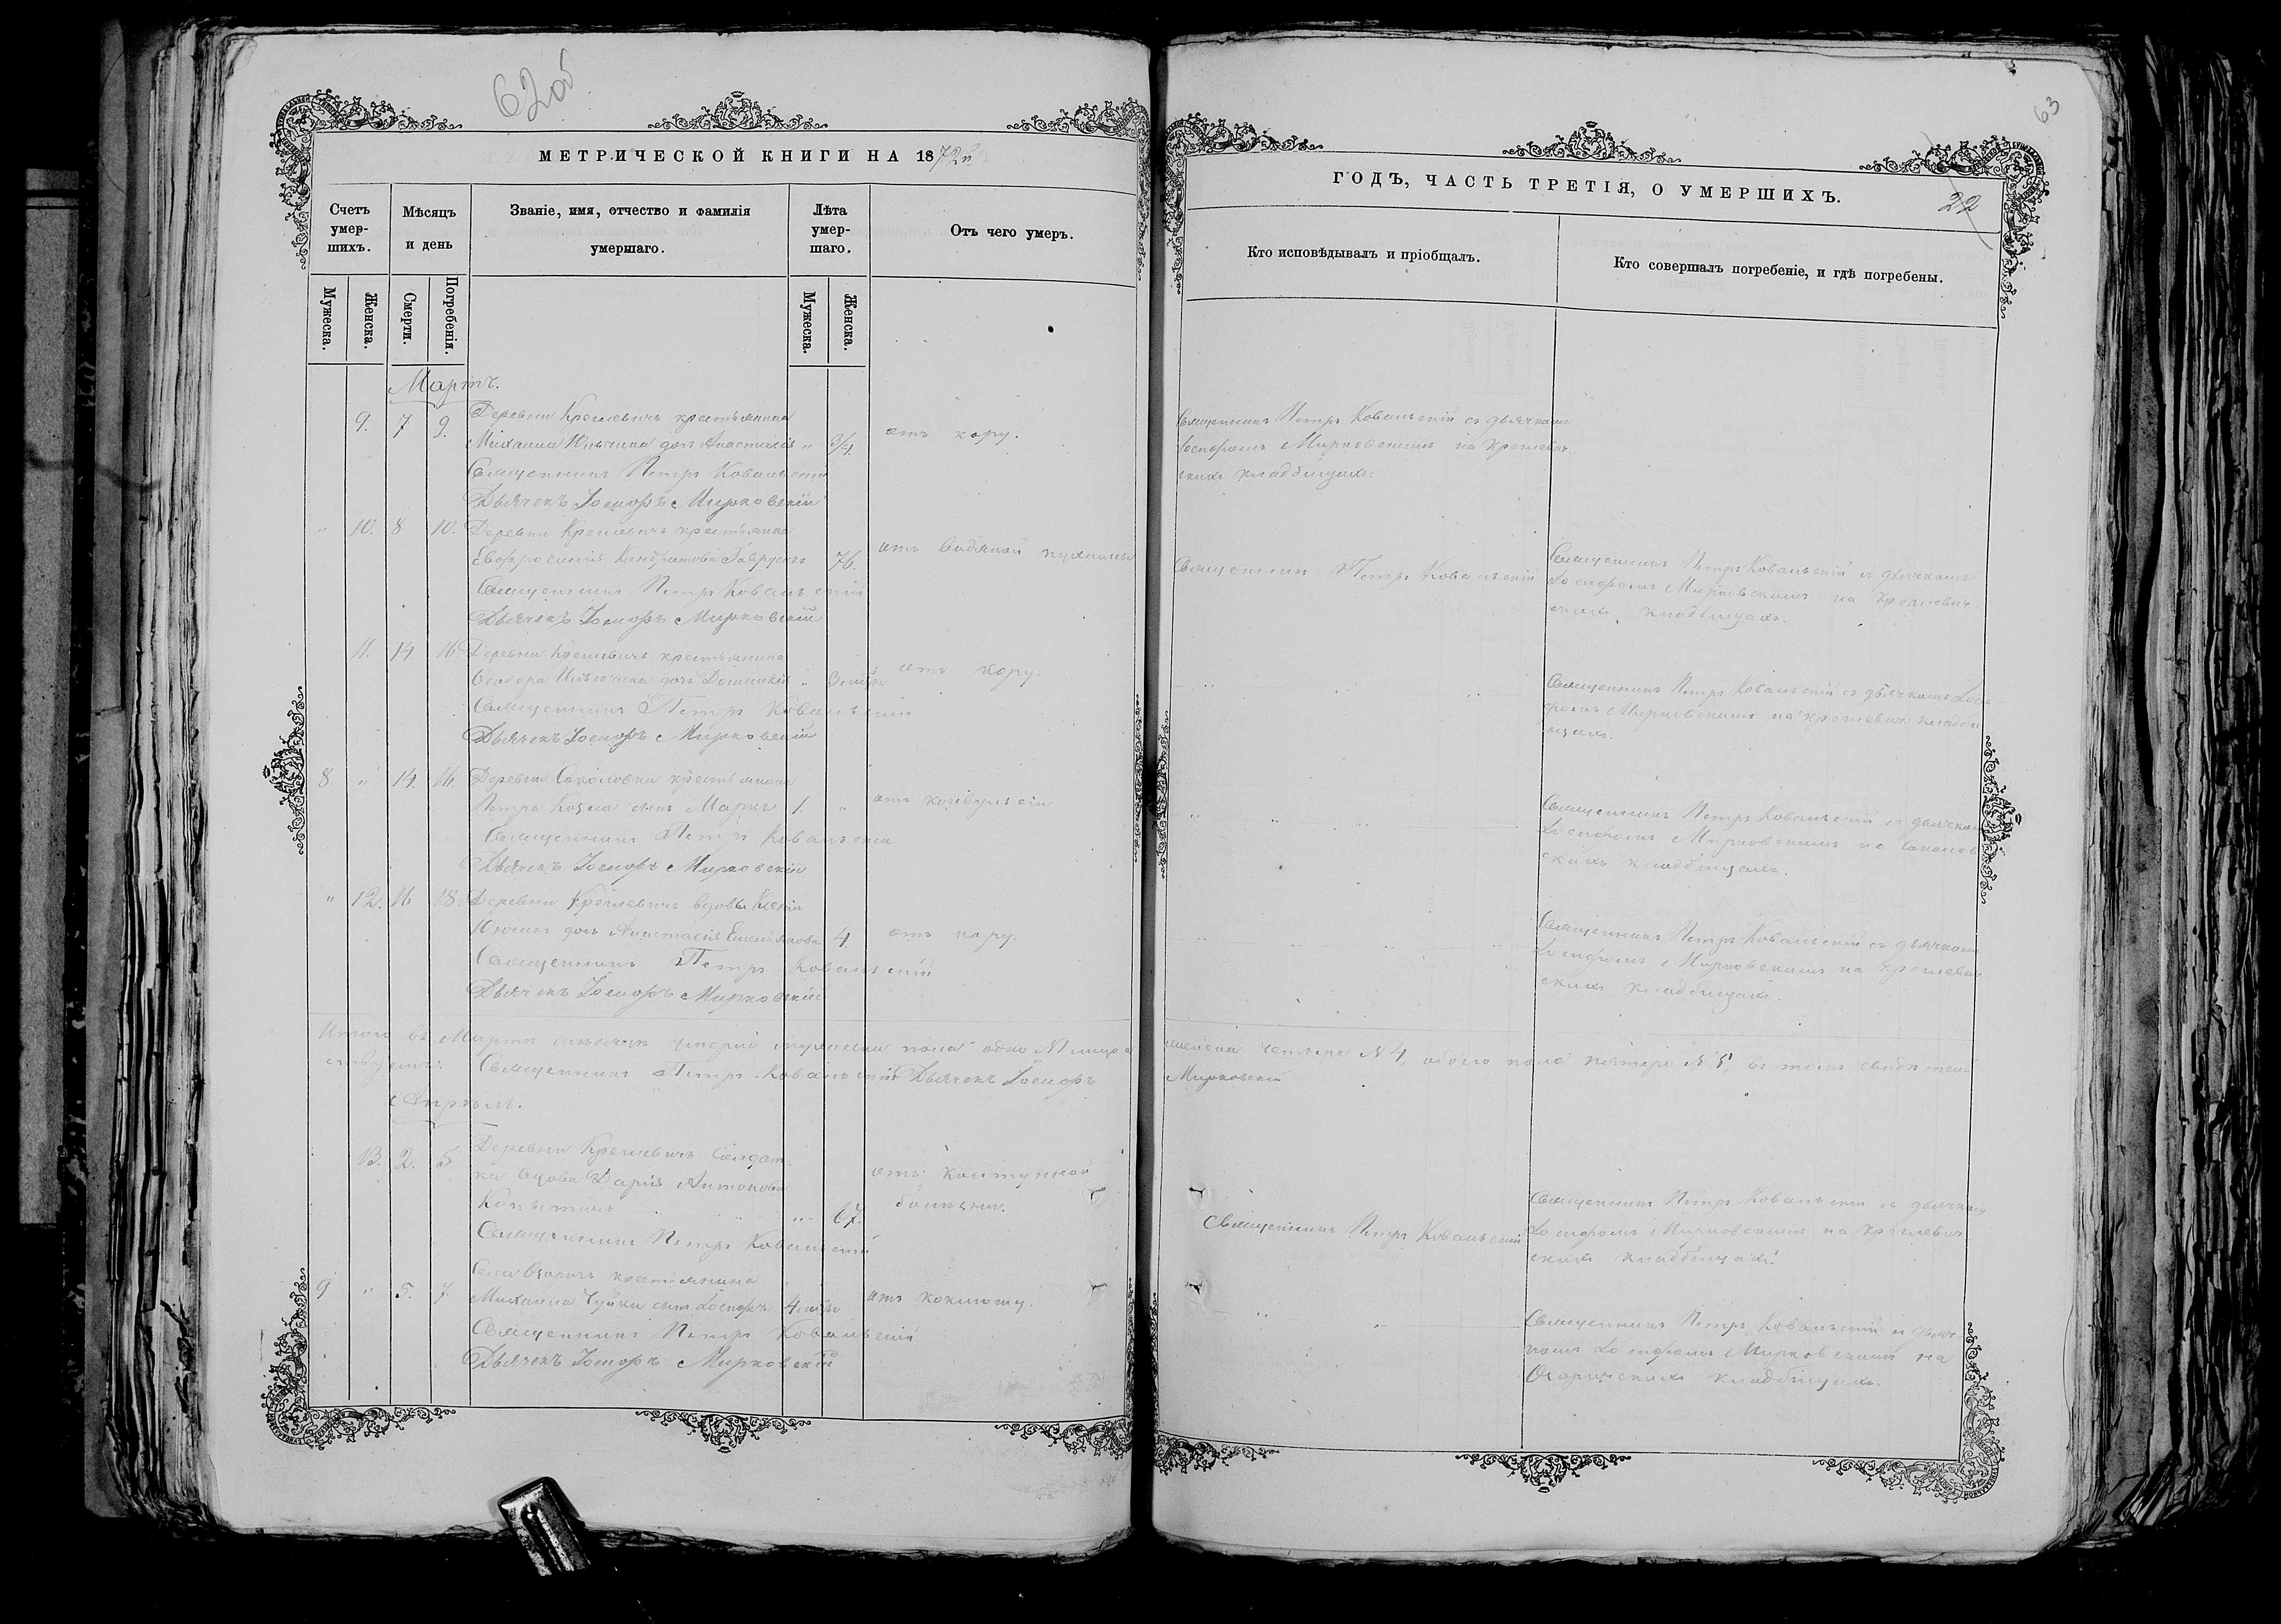 62об
МЕТРИЧЕСКОЙ КНИГИ НА 1872й
Счетъ умершихъ.
Мѣсяцъ и день
Званіе, имя, отчество и фамилія умершаго.
Лѣта умершаго.
Отъ чего умеръ.
Мужеска.
Женска.
Смерти.
Погребенія.
Мужеска.
Женска.
Мартъ.
9. 7 9. Деревни Кремевичъ крестьянина
Михаила дочь Анастасія " 3/4 отъ кору.
Священникъ Петръ Ковальскій
Дьячекъ Іосифъ Мирковскій
" 10. 8 10. Деревни Кремевичъ крестьянка
Евфросинія Кондратова 76. отъ водяной
Священникъ Петръ Ковальскій
Дьячекъ Іосифъ Мирковскій
11. 14 16. Деревни Кремевичъ крестьянина
дочь " отъ кору.
Священникъ Петръ Ковальскій
Дьячекъ Іосифъ Мирковскій
8. " 14. 16. Деревни Соколовки крестьянина
Петра Козла сынъ Маркъ 1. " отъ
Священникъ Петръ Ковальскій
Дьячекъ Іосифъ Мирковскій
" 12. 16 18. Деревни Кремевичъ вдовы
дочь Анастасія Емельянова 4 отъ кору.
Священникъ Петръ Ковальскій
Дьячекъ Іосифъ Мирковскій
Итого въ Мартѣ мѣсяцѣ мужеска пола одно №
Священникъ Петръ Ковальскій Дьячекъ Іосифъ
Апрѣль.
13. 2. 5. Деревни Кремевичъ Солдат
ка вдова Дарія Антонова отъ
67. болѣзни.
Священникъ Петръ Ковальскій
9 " 5. 7. Села Озаричъ крестьянина
Михаила Чуйки сынъ Іосифъ отъ коклюшу.
Священникъ Петръ Ковальскій
Дьячекъ Іосифъ Мирковскій
63
ГОДЪ, ЧАСТЬ ТРЕТІЯ, О УМЕРШИХЪ.
22
Кто исповѣдывалъ и пріобщалъ.
Кто совершалъ погребеніе, и гдѣ погребены.
Священникъ Петръ Ковальскій съ дьячкомъ
Іосифомъ Мирковскимъ на Кремевич
скихъ кладбищахъ.
Священникъ Петръ Ковальскій
Священникъ Петръ Ковальскій съ дьячкомъ
Іосифомъ Мирковскимъ на Кремевич
скихъ кладбищахъ.
Священникъ Петръ Ковальскій съ дьячкомъ Іоси
фомъ Мирковскимъ на Кремевич: кладби
щахъ.
Священникъ Петръ Ковальскій съ дьячкомъ
Іосифомъ Мирковскимъ на Соколов
скихъ кладбищахъ.
Священникъ Петръ Ковальскій съ дьячкомъ
Іосифомъ Мирковскимъ на Кремевич
скихъ кладбищахъ.
четыре № 4, обоего пола пятеро № 5, въ томъ свидѣтель
Мирковскій
Священникъ Петръ Ковальскій
Священникъ Петръ Ковальскій съ дьячкомъ
Іосифомъ Мирковскимъ на Кремевич
скихъ кладбищахъ.
Священникъ Петръ Ковальскій съ дьяч
комъ Іосифомъ Мирковскимъ на
Озаричскихъ кладбищахъ.